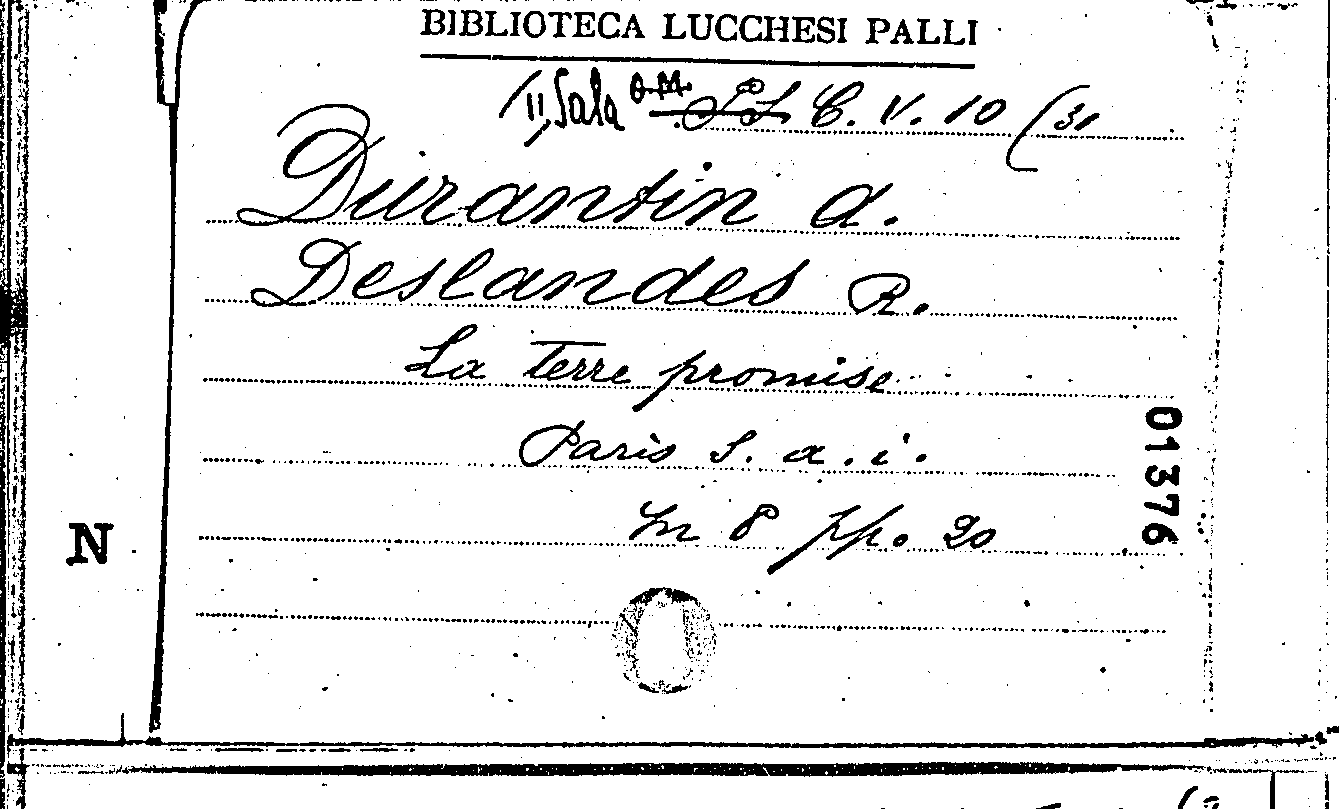 BIBLIOTECA LUCCHESI PALLI
II, Sala C. V. 10 (31
Durantin A.
Deslandes R.
La terre promise
Paris S. a. i.
In 8 pp. 20
01376
N